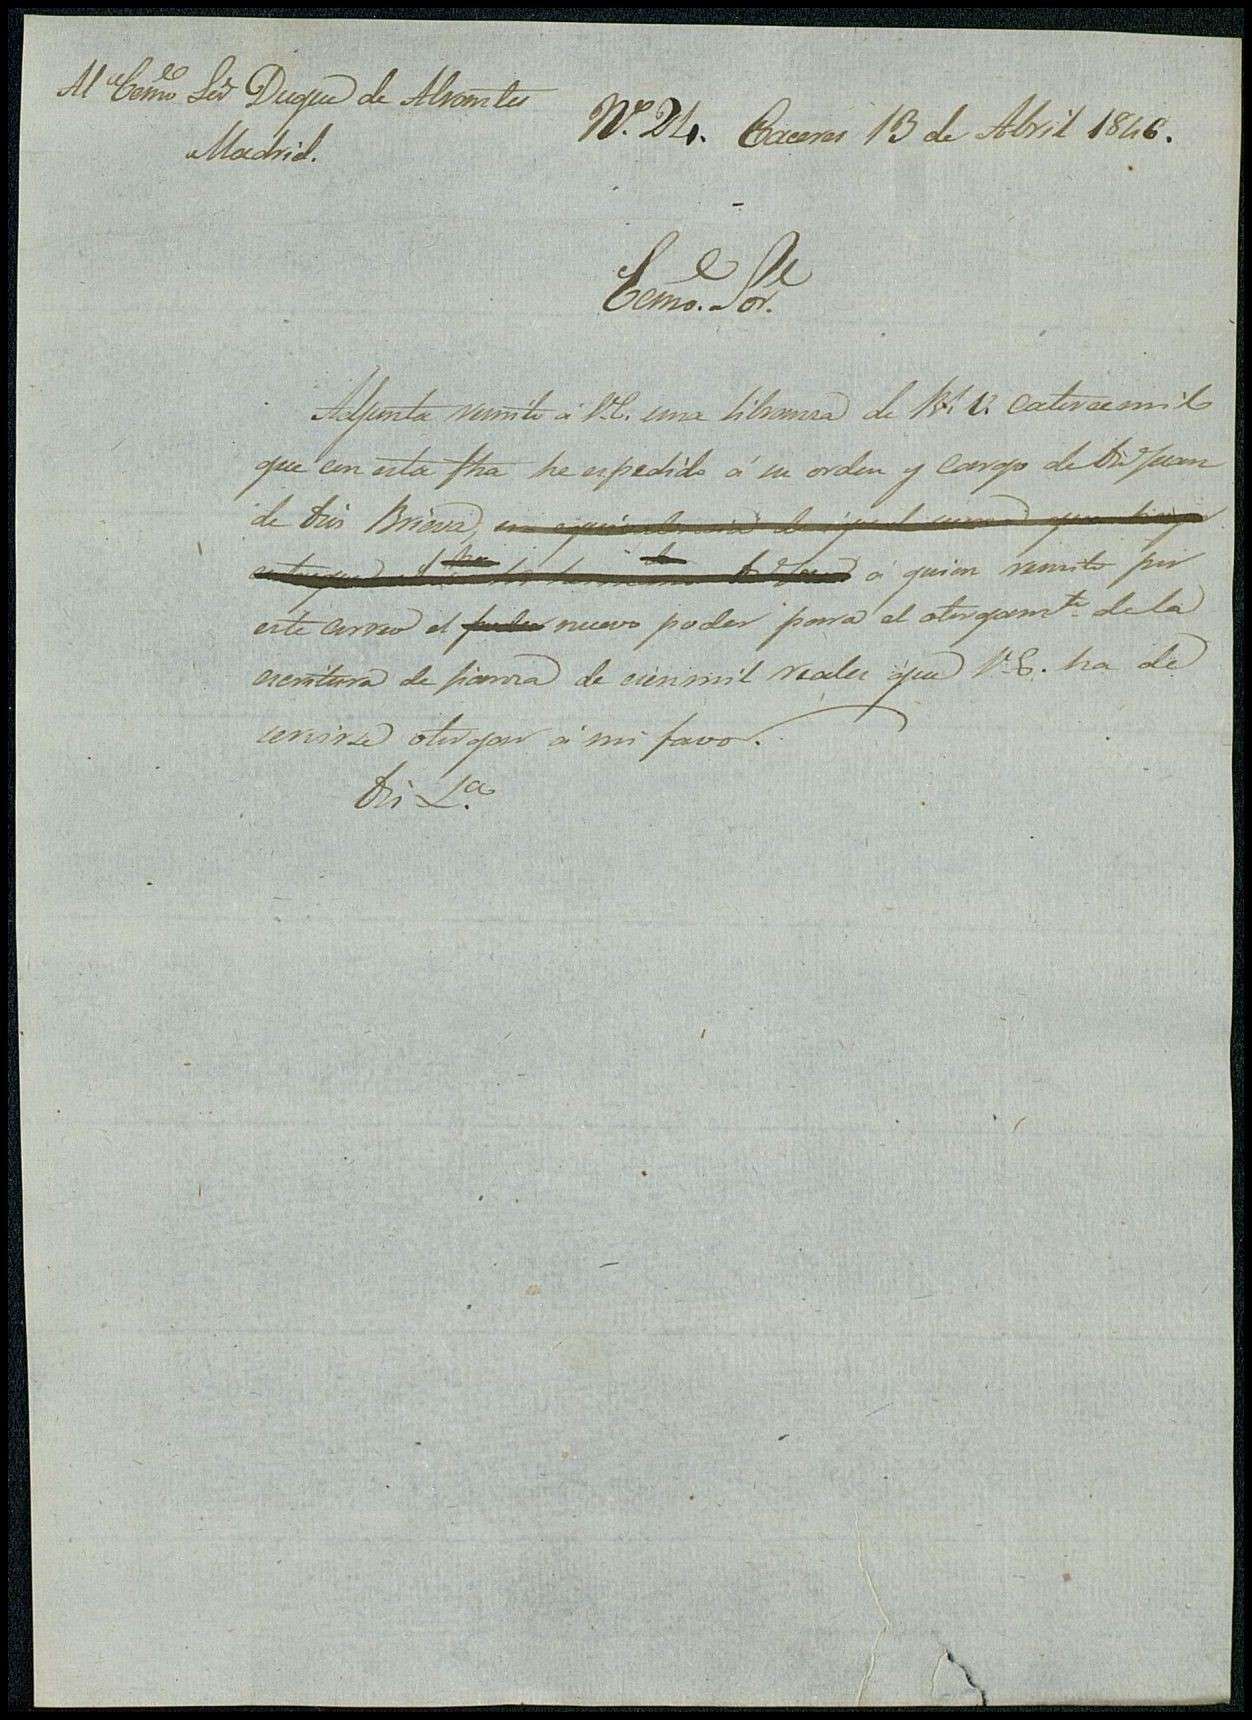 Al Ecmo Sor Duque de Abrantes
Madrid.
Nº. 24. Caceres 13 de Abril 1846.
Ecmo. Sor.
Adjunta remito á V.E. una libranza de Rs. V. catorce mil
que con esta fha he espedido á su orden y cargo de Dn Juan
de Dios Brieva, en equivalencia de igual suma que
á quien remito por
este correo el poder nuevo poder para el otorgamto. de la
escritura de fianza de cien mil reales que V.E. ha de
servirse otorgar á mi favor.
Dios La.